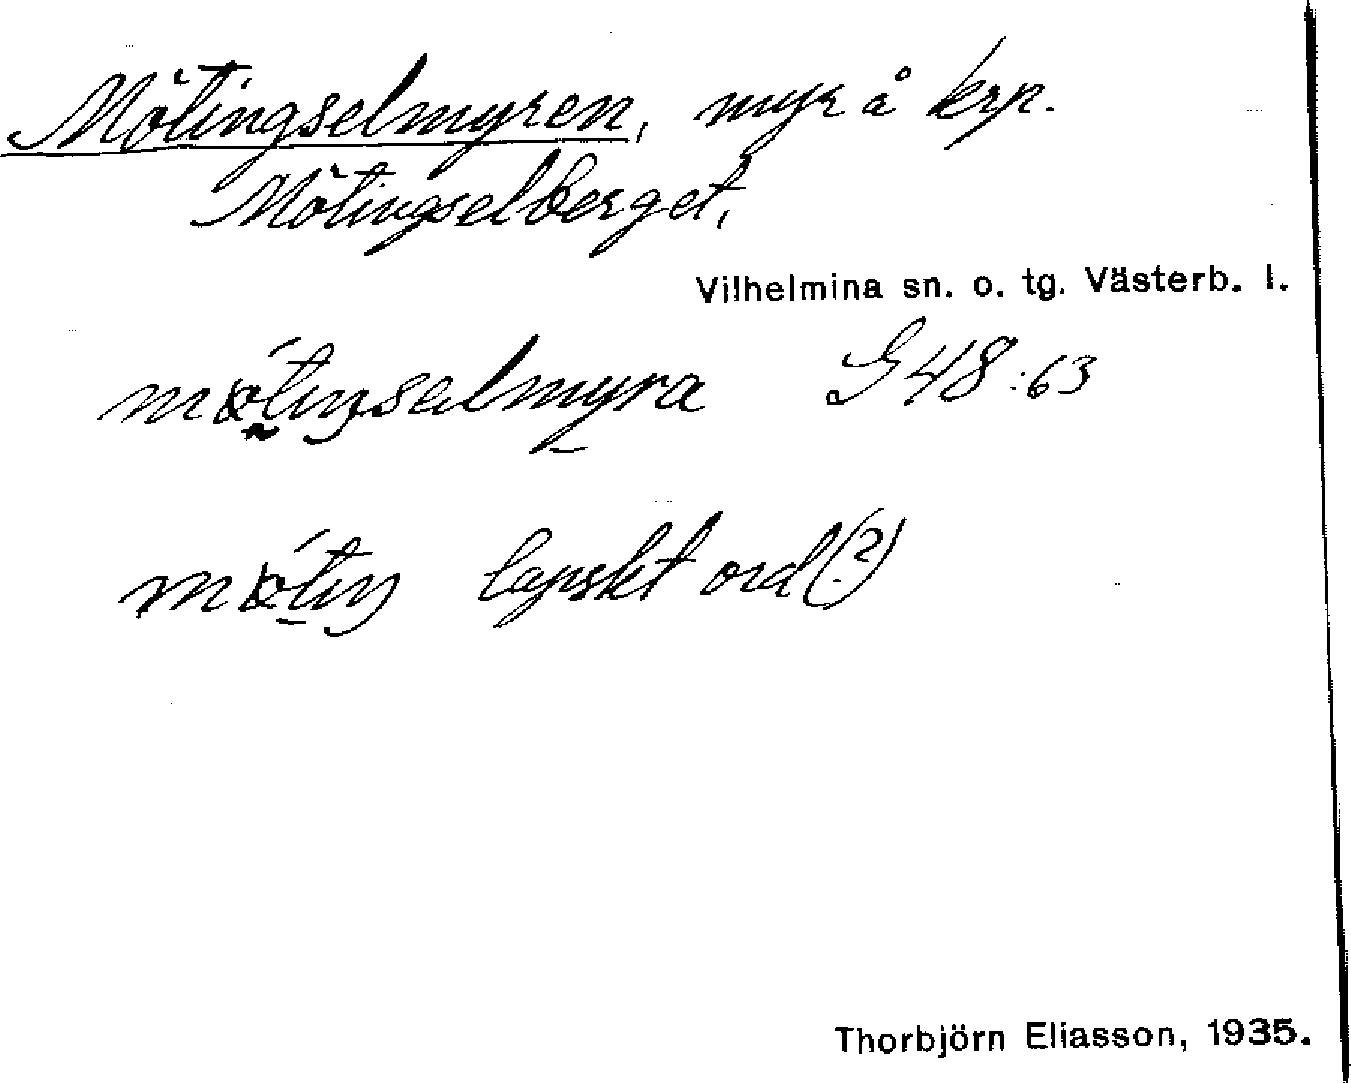 Mötingselmyren, myr å krp.
Mötingselberget,
Vilhelmina sn. o. tg. Västerb. l.
G48:63
lapskt ord(?)
Thorbjörn Eliasson, 1935.